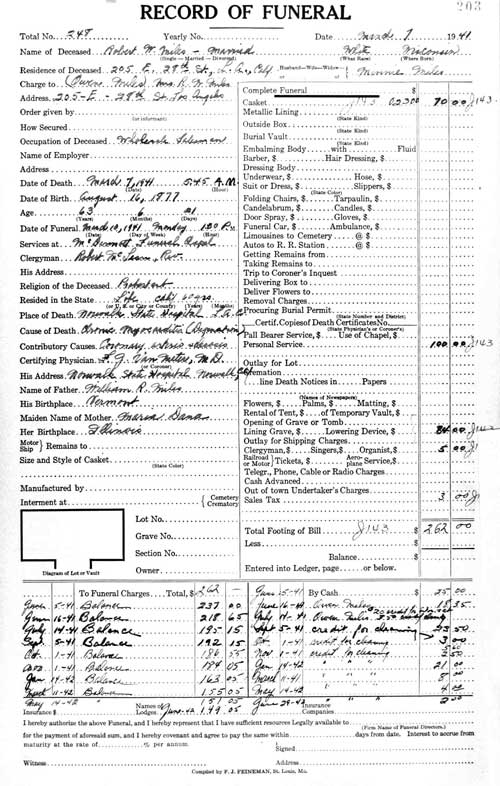 203
RECORD OF FUNERAL
Total No. 248 Yearly No. Date March 7 1941
Name of Deceased Robert W. Miles - Married White Wisconsin
(Single — Married — Divorced) (What Race) (Where Born)
Residence of Deceased 205 E. 29th St., L.A., Calif Husband—Wife—Widow or of Minnie Miles
Charge to Owen Miles Mrs R. W. Miles
Address 205-E-29th St Los Angeles
Order given by
(or informant)
How Secured
Occupation of Deceased Wholesale Salesman
Name of Employer
Address
Date of Death March 7, 1941 5:45 A.M.
(Date) (Hour)
Date of Birth August 16, 1877
Age 63 6 21
(Years) (Months) (Days)
Date of Funeral March 10, 1941 Monday 1:30 P.M.
(Date) (Day of Week) (Hour)
Services at Funeral
Clergyman Robert Rev.
His Address
Religion of the Deceased Protestant
Resided in the State Life City 20 yrs.
(or U. S. or City or County) (Years) (Months)
Place of Death Norwalk State Hospital L.A. Co
Cause of Death Chronic Myocarditis
Contributory Causes Coronary
Certifying Physician F. G. Van Meter, M.D.
(or Coroner)
His Address Norwalk State Hospital Norwalk, Cal
Name of Father William R. Miles
His Birthplace Vermont
Maiden Name of Mother Maria Dana
Her Birthplace Illinois
Motor Ship } Remains to
Size and Style of Casket
(State Color)
Manufactured by
Interment at { Cemetery Crematory
Lot No.
Grave No.
Section No.
Owner
Diagram of Lot or Vault
Complete Funeral
Casket 70 00 J143
Metallic Lining
(State Kind)
Outside Box
(State Kind)
Burial Vault
(State Kind)
Embalming Body with Fluid
Barber, $ Hair Dressing, $
Dressing Body
Underwear, $ Hose, $
Suit or Dress, $ Slippers, $
(State Color)
Folding Chairs, $ Tarpaulin, $
Candelabrum, $ Candles, $
Door Spray, $ Gloves, $
Funeral Car, $ Ambulance, $
Limousines to Cemetery @ $
Autos to R. R. Station @ $
Getting Remains from
Taking Remains to
Trip to Coroner's Inquest
Delivering Box to
Deliver Flowers to
Removal Charges
Procuring Burial Permit
(State Number and District)
Certif. Copies of Death Certificates No.
(State Physician's or Coroner's)
Pall Bearer Service, $ Use of Chapel, $
Personal Service 100 00 J143
Outlay for Lot
Cremation
line Death Notices in Papers
(Names of Newspapers)
Flowers, $ Palms, $ Matting, $
Rental of Tent, $ of Temporary Vault, $
Opening of Grave or Tomb
Lining Grave, $ Lowering Device, $ 84 00
Outlay for Shipping Charges
Clergyman, $ Singers, $ Organist, $ 5 00
Railroad or Motor } Tickets, $ Aeroplane Service, $
Telegr., Phone, Cable or Radio Charges
Cash Advanced
Out of town Undertaker's Charges
Sales Tax 3 00
Total Footing of Bill J143 $ 262 00
Less
Balance $
Entered into Ledger, page or below.
To Funeral Charges Total, $ 262 — June 5-41 By Cash $ 25 00
June 5-41 Balance 237 00 June 16-41 Owen Miles 18 35
June 16-41 Balance 218 65 July 14-41 Owen Miles
July 14-41 Balance 195 15 Sept 5-41 credit for cleaning 23 50
Sept. 5-41 Balance 192 15 Oct. 1-41 credit for cleaning 3 00
Oct. 1-41 Balance Nov 1-41 credit for cleaning 3 50
Nov 1-41 Balance Jan 14-42 " " " 21 00
Jan 14-42 Balance 163 05 March 11-41 " " 8 00
March 11-42 Balance 155 05 May 14-42 " " 4 00
May 14-42 " 151 05 June 29-42 " 2 00
Insurance $ Names of Lodges June-42 149 05 Insurance Companies
I hereby authorize the above Funeral, and I hereby represent that I have sufficient resources Legally available to
(Firm Name of Funeral Directors.)
for the payment of aforesaid sum, and I hereby covenant and agree to pay the same within days from date. Interest to accrue from
maturity at the rate of % per annum. Signed
Witness Address
Compiled by F. J. FEINEMAN, St. Louis, Mo.